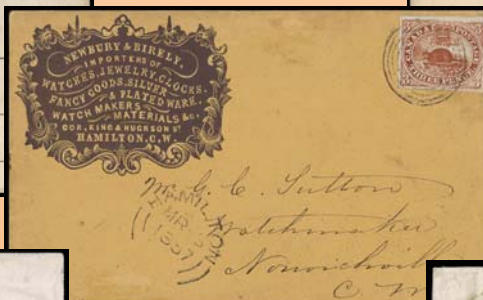 NEWBURY & BIRELY,
IMPORTERS OF
WATCHES, JEWELRY, CLOCKS.
FANCY GOODS, SILVER
& PLATED WARE.
WATCH MAKERS MATERIALS &c.
COR, KING & HUGHSON ST
HAMILTON, C, W.
CANADA POSTAGE
THREE PENCE
Mr G. C. Sutton
Watchmaker
Norwichvill
C W
HAMILTON
MR
1857